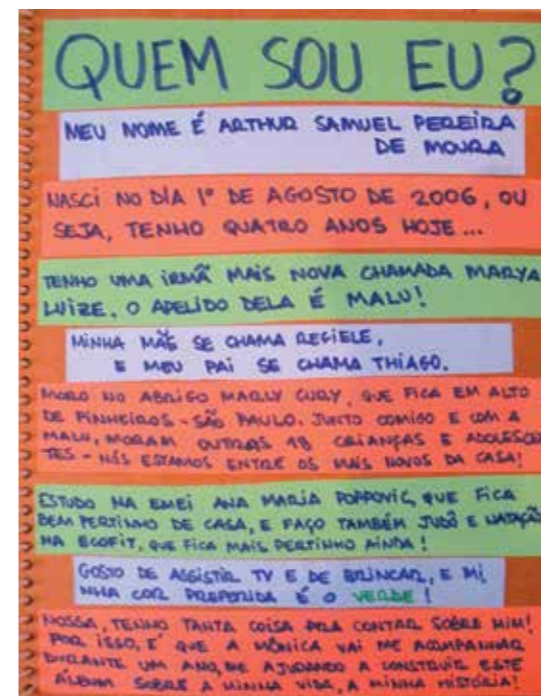 QUEM SOU EU?
MEU NOME É ARTHUR SAMUEL PEREIRA
DE MOURA
NASCI NO DIA 1º DE AGOSTO DE 2006, OU
SEJA, TENHO QUATRO ANOS HOJE...
TENHO UMA IRMÃ MAIS NOVA CHAMADA MARYA
LUIZE. O APELIDO DELA É MALU!
MINHA MÃE SE CHAMA REGIELE,
E MEU PAI SE CHAMA THIAGO.
MORO NO ABRIGO MARLY CURY, QUE FICA EM ALTO
DE PINHEIROS - SÃO PAULO. JUNTO COMIGO E COM A
MALU, MORAM OUTRAS 18 CRIANÇAS E ADOLESCEN
TES - NÓS ESTAMOS ENTRE OS MAIS NOVOS DA CASA!
ESTUDO NA EMEI ANA MARIA POPPOVIC, QUE FICA
BEM PERTINHO DE CASA, E FAÇO TAMBÉM JUDÔ E NATAÇÃO
NA ECOFIT, QUE FICA MAIS PERTINHO AINDA!
GOSTO DE ASSISTIR TV E DE BRINCAR, E MI
NHA COR PREFERIDA É O VERDE!
NOSSA, TENHO TANTA COISA PRA CONTAR SOBRE MIM!
POR ISSO, É QUE A MÔNICA VAI ME ACOMPANHAR
DURANTE UM ANO, ME AJUDANDO A CONSTRUIR ESTE
ÁLBUM SOBRE A MINHA VIDA, A MINHA HISTÓRIA!